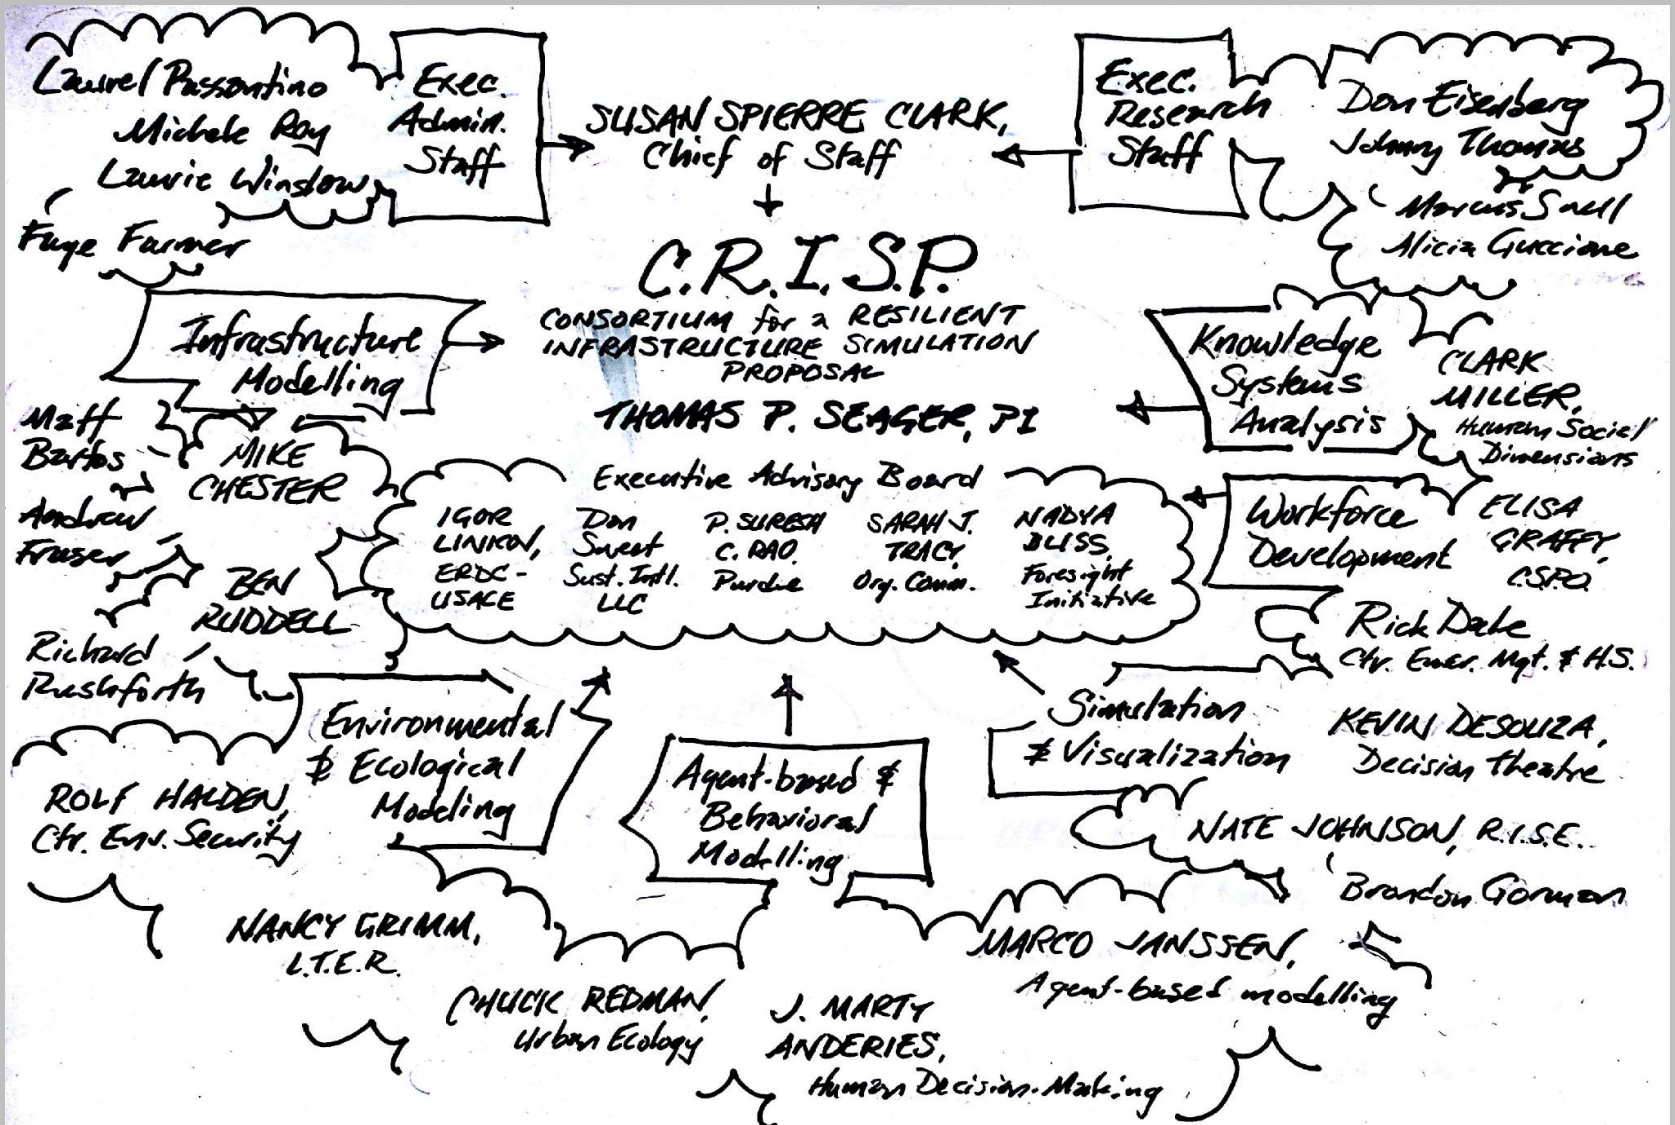 Laurel Passantino
Michele Roy
Laurie Winslow
Faye Farmer
Exec.
Admin.
Staff
SUSAN SPIERRE CLARK,
Chief of Staff
Exec.
Research
Staff
Don Eisenberg
Johnny Thomas
Marcus Snell
Alicia Guccione
C.R.I.S.P.
CONSORTIUM for a RESILIENT
INFRASTRUCTURE SIMULATION
PROPOSAL
THOMAS P. SEAGER, PI
Infrastructure
Modelling
Matt
Bartos
MIKE
CHESTER
Andrew
Fraser
BEN
RUDDELL
Richard
Rushforth
Knowledge
Systems
Analysis
CLARK
MILLER,
Human Social
Dimensions
Executive Advisory Board
IGOR
LINKOV,
ERDC-
USACE
Don
Sweet
Sust. Intl.
LLC
P. SURESH
C. RAO.
Purdue
SARAH J.
TRACY,
Org. Comm.
NADYA
BLISS,
Foresight
Initiative
Workforce
Development
ELISA
GRAFFY,
C.S.P.O.
Rick Dale
Ctr. Emer. Mgt. & H.S.
Environmental
& Ecological
Modeling
ROLF HALDEN,
Ctr. Env. Security
NANCY GRIMM,
L.T.E.R.
CHUCK REDMAN,
Urban Ecology
Agent-based &
Behavioral
Modelling
J. MARTY
ANDERIES,
Human Decision-Making
MARCO JANSSEN,
Agent-based modelling
Simulation
& Visualization
KEVIN DESOUZA,
Decision Theatre
NATE JOHNSON, R.I.S.E.
Brandon Gorman